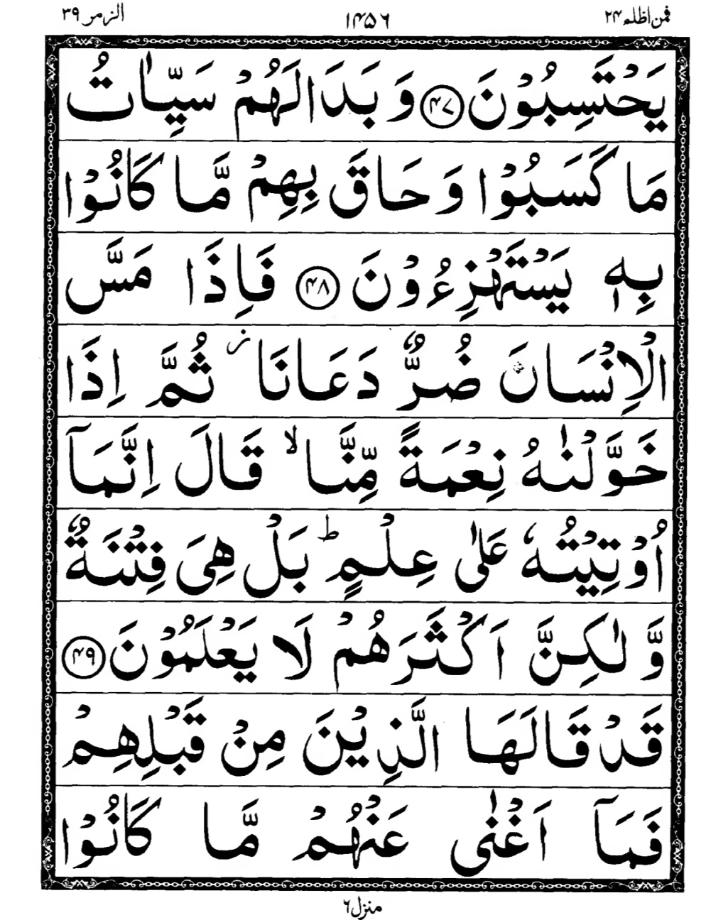 فمن اظلم ۲۴ ۱۴۵۶ الزمر ۳۹
يَحْتَسِبُوْنَ ﴿۴۷﴾ وَ بَدَا لَهُمْ سَيِّاٰتُ
مَا كَسَبُوْا وَ حَاقَ بِهِمْ مَّا كَانُوْا
بِهٖ يَسْتَهْزِءُوْنَ ﴿۴۸﴾ فَاِذَا مَسَّ
الْاِنْسَانَ ضُرٌّ دَعَانَا ز ثُمَّ اِذَا
خَوَّلْنٰهُ نِعْمَةً مِّنَّا ۙ قَالَ اِنَّمَآ
اُوْتِيْتُهٗ عَلٰى عِلْمٍ ؕ بَلْ هِىَ فِتْنَةٌ
وَّ لٰكِنَّ اَكْثَرَهُمْ لَا يَعْلَمُوْنَ ﴿۴۹﴾
قَدْ قَالَهَا الَّذِيْنَ مِنْ قَبْلِهِمْ
فَمَآ اَغْنٰى عَنْهُمْ مَّا كَانُوْا
منزل ۶